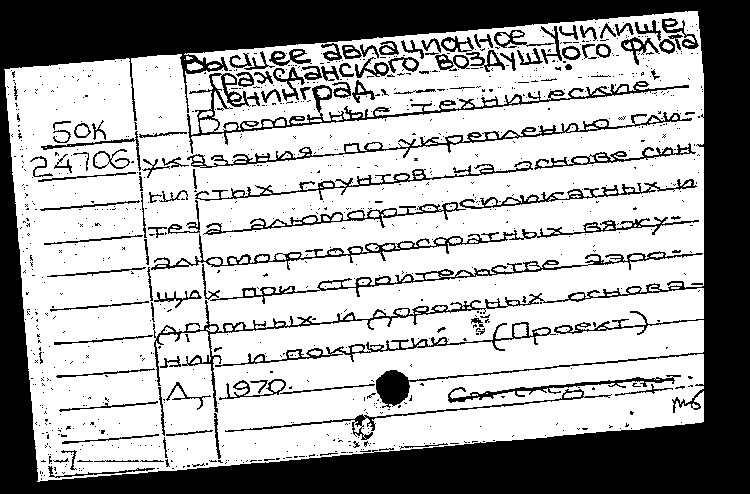 Высшее авиационное училище
гражданского воздушного флота
Ленинград.
50К
Временные технические
24706
указания по укреплению гли-
нистых грунтов на основе син-
теза алюмофторсиликатных и
алюмофторфосфатных вяжу-
щих при строительстве аэро-
дромных и дорожных основа-
ний и покрытий. (Проект).
Л, 1970.
См. след. карт.
мб
7